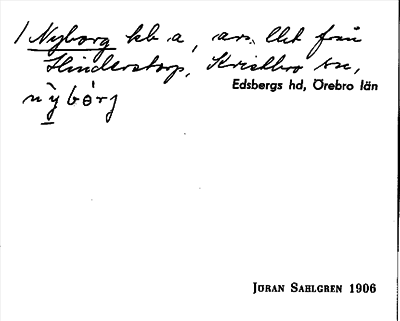 / Nyborg hb a, avs. llht från
Hinderstorp, Kvistbro sn,
Edsbergs hd, Örebro län
nỳbórj
JÖRAN SAHLGREN 1906